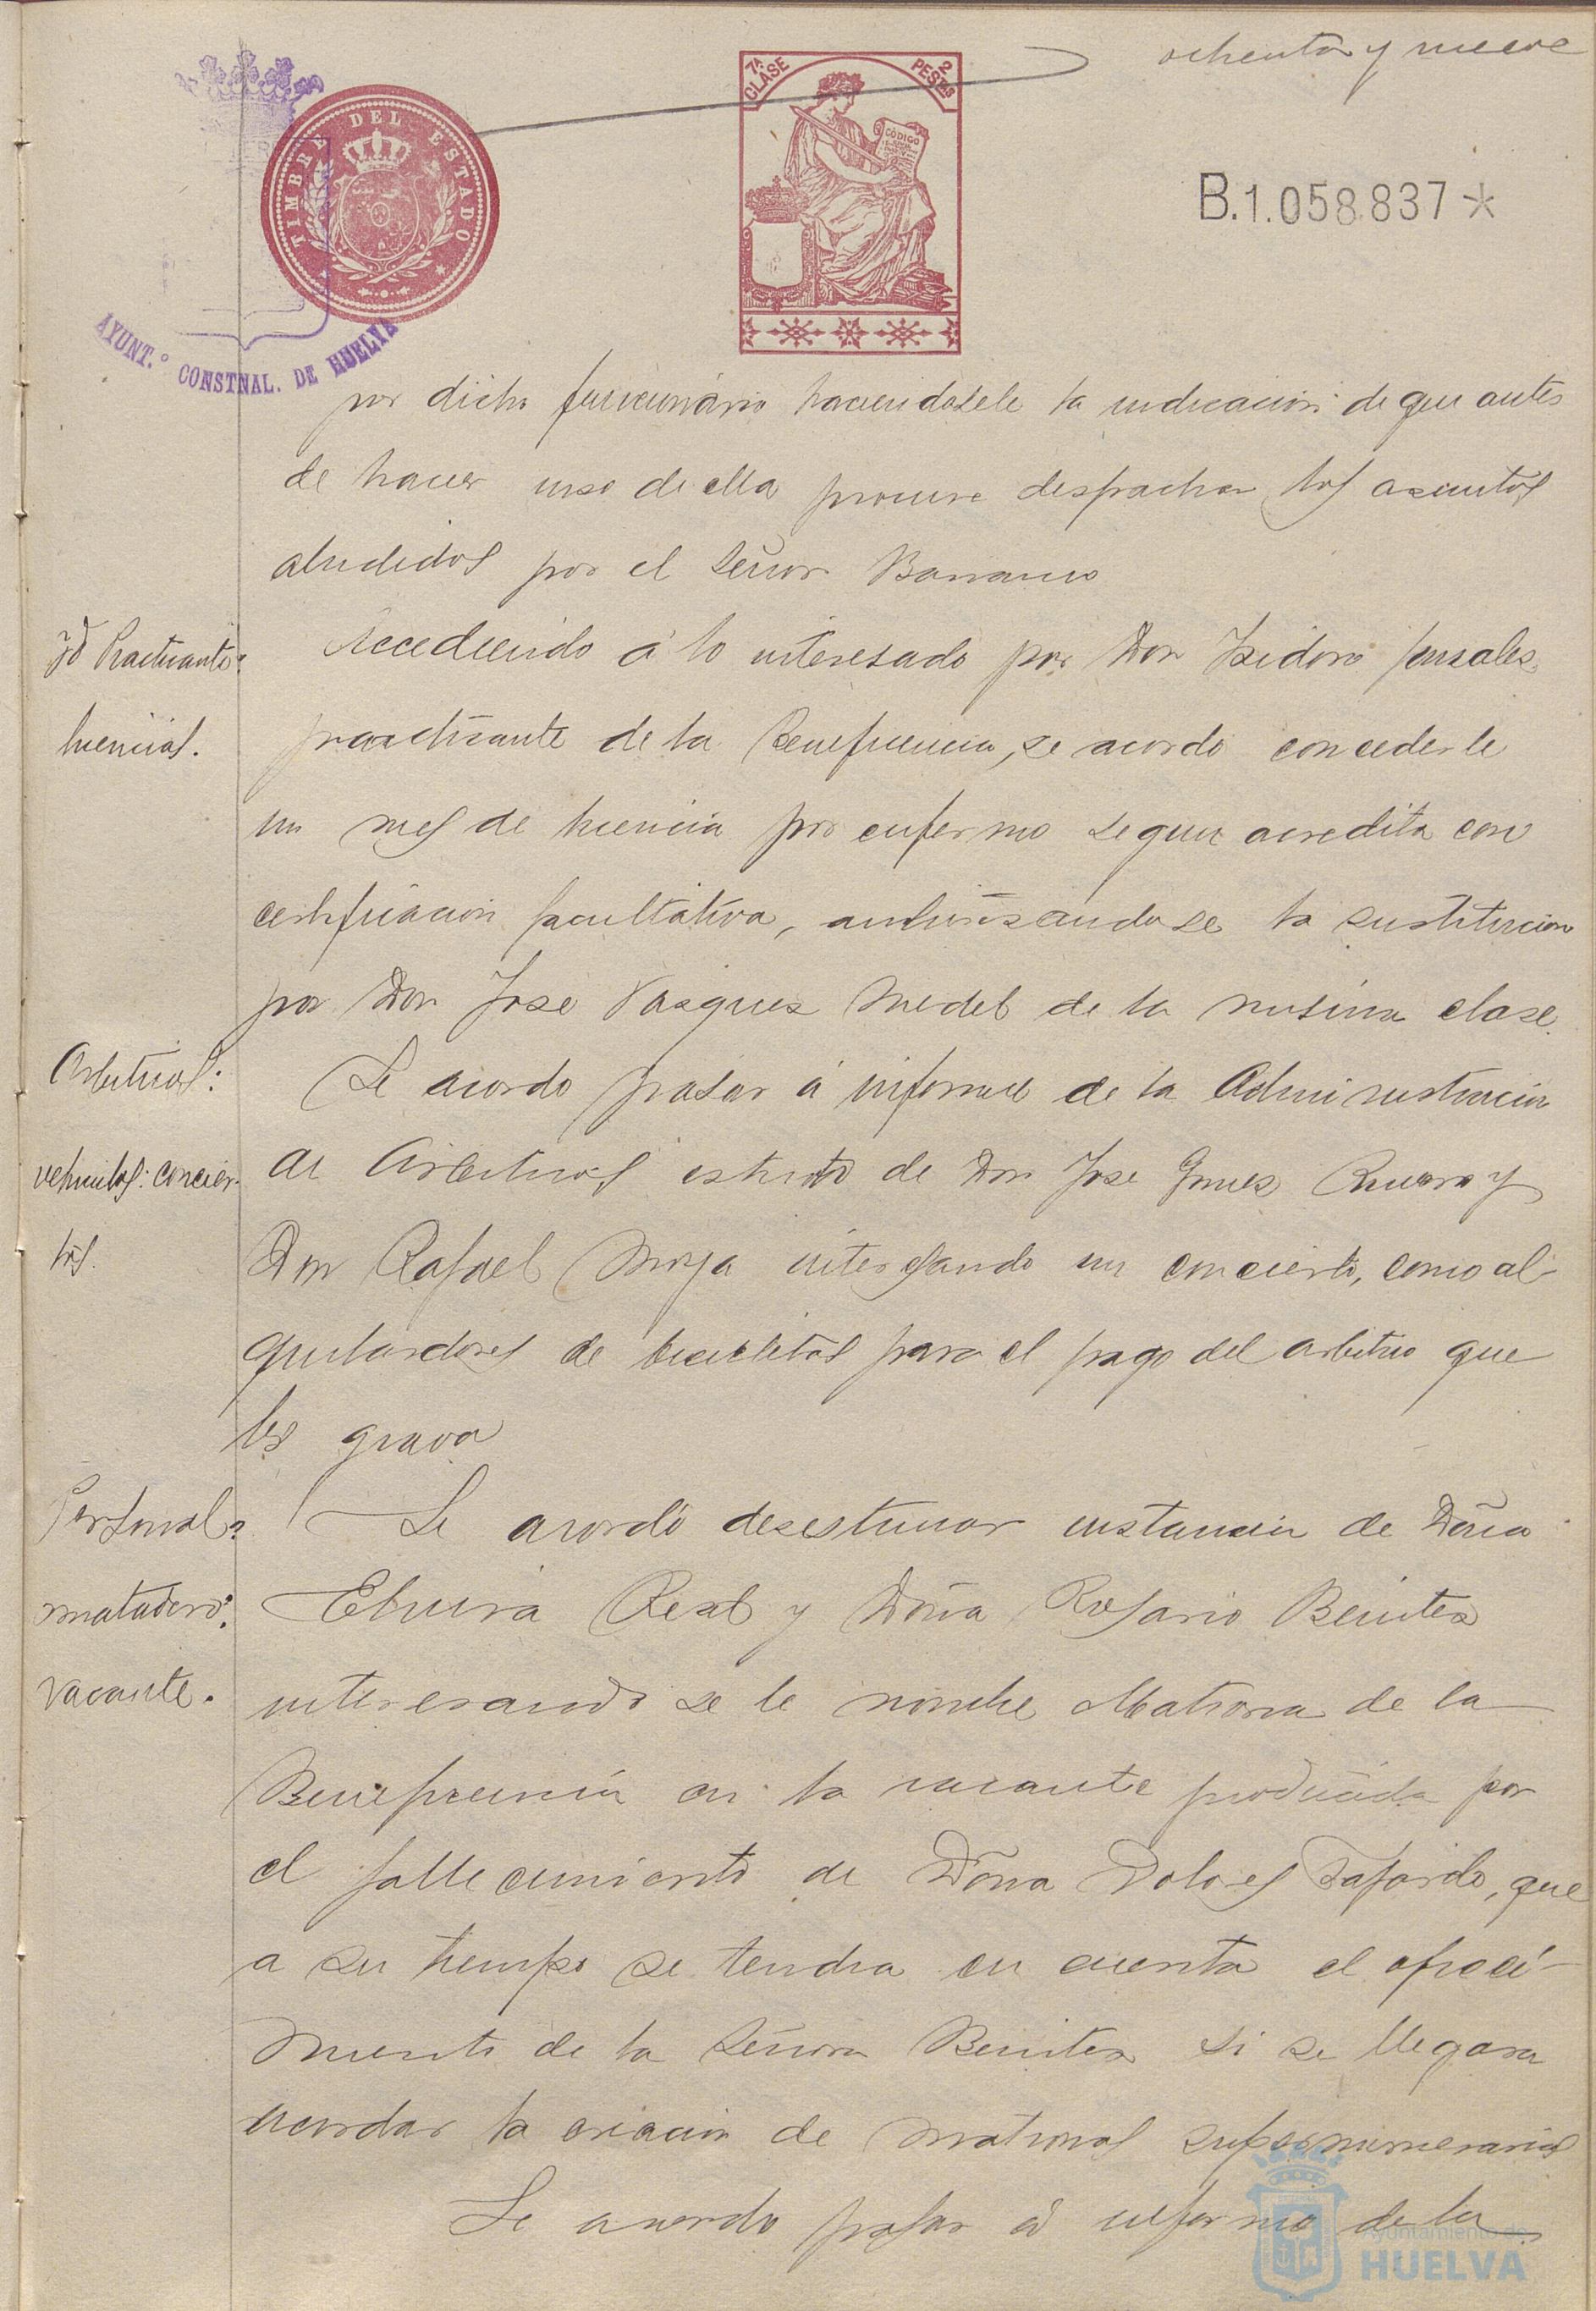 ochenta y nueve
7ª CLASE
2 PESTAS
TIMBRE DEL ESTADO
CÓDIGO
B.1.058.837*
AYUNT.º CONSTNAL. DE HUELVA
por dicho funcionario haciendosele la indicacion de que antes
de hacer uso de ella procure despachar los asuntos
aludidos por el Señor Barranco
Yd Practicante:
licencias.
Accediendo á lo interesado por Don Isidoro
practicante de la Beneficencia, se acordo concederle
un mes de licencia por enfermo segun acredita con
certificacion facultativa, autorizandose la sustitucion
por Don Jose Vazquez Medel de la misma clase.
Arbitrios:
vehiculos: concier-
tos.
Se acordo pasar á informe de la Administracion
de Arbitrios escrito de Don Jose Gomez Rivera y
Don Rafael Moya interesando un concierto, como al-
quiladores de bicicletas para el pago del arbitrio que
les grava
Personal:
matadero:
vacante.
Se acordó desestimar instancia de Doña
Elvira Real y Doña Rosario Benitez
interesando se le nombre Matrona de la
Beneficencia en la vacante producida por
el fallecimiento de Doña Dolores Fajardo, que
a su tiempo se tendra en cuenta el ofreci-
miento de la Señora Benitez si se llegara
acordar la creacion de matronas supernumerarias
Se acordo pasar á informe de la
Ayuntamiento de
HUELVA